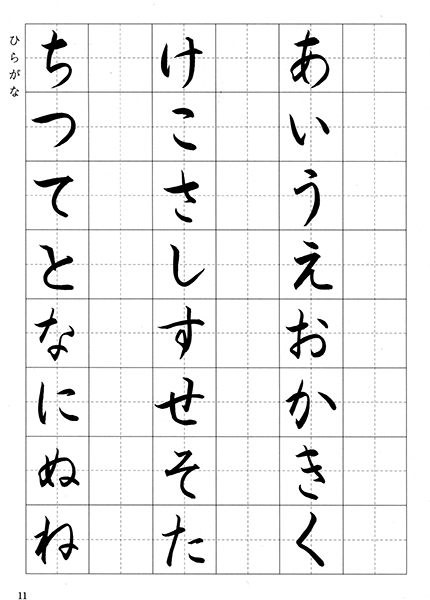 ひらがな
あいうえおかきく
けこさしすせそた
ちつてとなにぬね
11